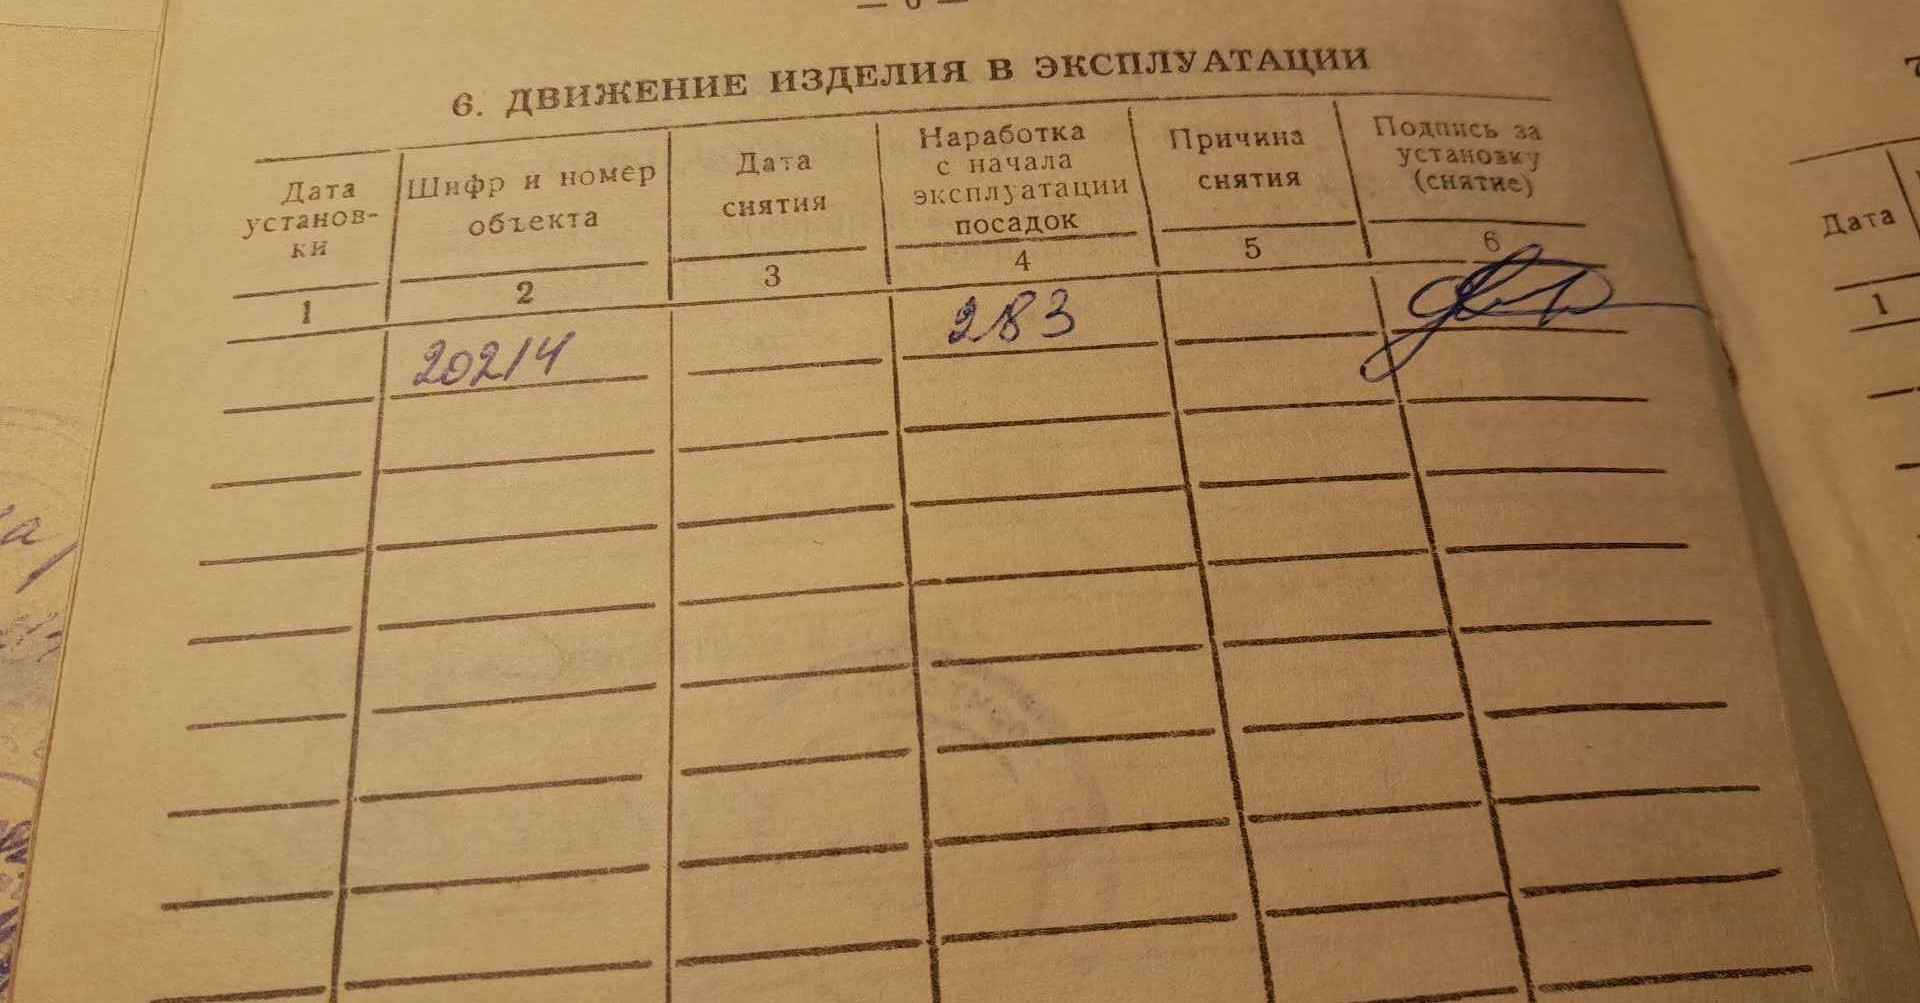 — 6 —
6. ДВИЖЕНИЕ ИЗДЕЛИЯ В ЭКСПЛУАТАЦИИ
Дата
установ-
ки
Шифр и номер
объекта
Дата
снятия
Наработка
с начала
эксплуатации
посадок
Причина
снятия
Подпись за
установку
(снятие)
1
2
3
4
5
6
20214
283
7
Дата
1